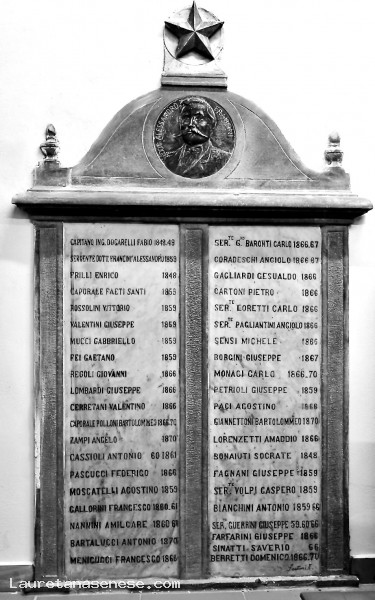 ALESSANDRO FRANCINI
CAPITANO ING. DOGARELLI FABIO 1848.49
SERGENTE DOTT. FRANCINI ALESSANDRO 1859
FRILLI ENRICO 1848
CAPORALE FAETI SANTI 1859
ROSSOLINI VITTORIO 1859
VALENTINI GIUSEPPE 1859
MUCCI GABBRIELLO 1859
FEI GAETANO 1859
REGOLI GIOVANNI 1866
LOMBARDI GIUSEPPE 1866
CERRETANI VALENTINO 1866
CAPORALE POLLONI BARTOLOMMEO 1866.70
ZAMPI ANGELO 1870
CASSIOLI ANTONIO 60 1861
PASCUCCI FEDERIGO 1866
MOSCATELLI AGOSTINO 1859
GALLORINI FRANCESCO 1860.61
NANNINI AMILCARE 1860 61
BARTALUCCI ANTONIO 1870
MENICUCCI FRANCESCO 1866
SER.TE G. BARONTI CARLO 1866.67
CORADESCHI ANGIOLO 1866 67
GAGLIARDI GESUALDO 1866
CARTONI PIETRO 1866
SER.TE LORETTI CARLO 1866
SER.TE PAGLIANTINI ANGIOLO 1866
SENSI MICHELE 1866
BORGINI GIUSEPPE 1867
MONACI CARLO 1866.70
PETRIOLI GIUSEPPE 1859
PACI AGOSTINO 1866
GIANNETTONI BARTOLOMMEO 1870
LORENZETTI AMADDIO 1866
BONAIUTI SOCRATE 1848
FAGNANI GIUSEPPE 1859
SER.TE VOLPI GASPERO 1859
BIANCHINI ANTONIO 1859 66
SER. GUERRINI GIUSEPPE 59.60 66
FARFARINI GIUSEPPE 1866
SINATTI SAVERIO 66
BERRETTI DOMENICO 1866.70
Lauretanasenese.com